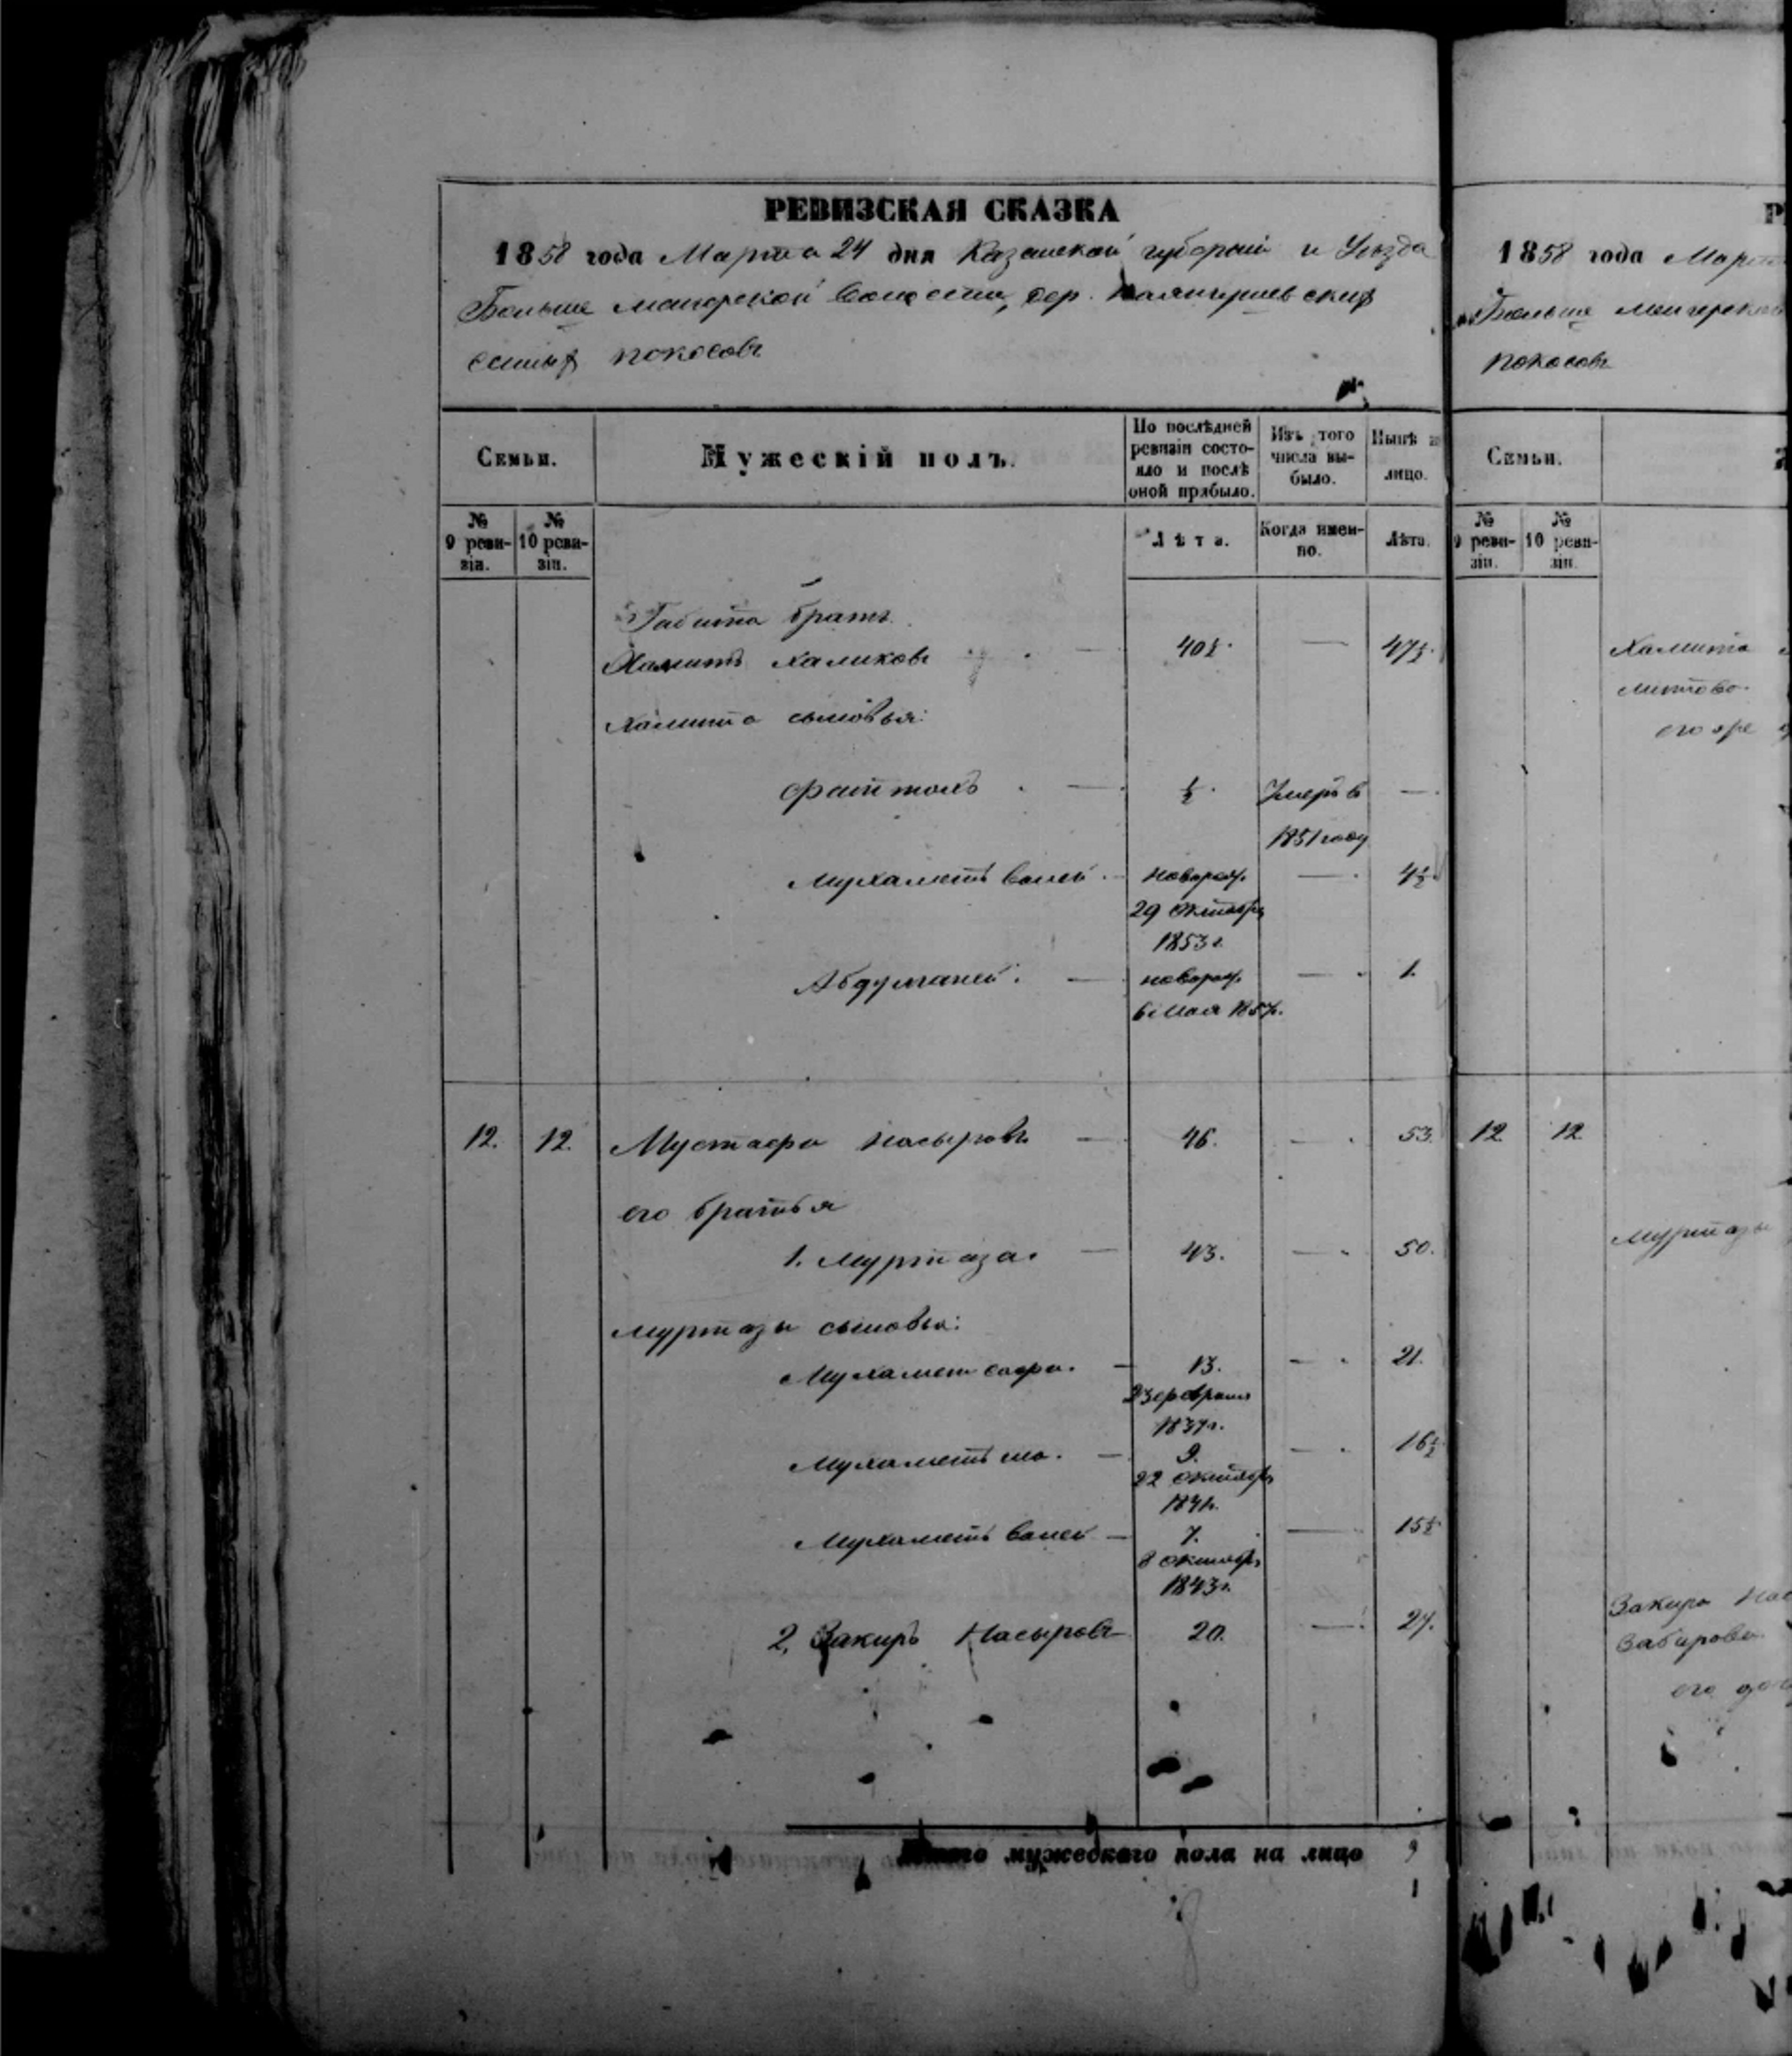 РЕВИЗСКАЯ СКАЗКА
1858 года Марта 24 дня Казанской губерніи и Уѣзда
Больше менгерской волости, дер.
покосовъ
Семьи.
Мужескій полъ.
По послѣдней ревизіи состояло и послѣ оной прибыло.
Изъ того числа выбыло.
Нынѣ на лицо.
№ 9 ревизіи.
№ 10 ревизіи.
Лѣта.
Когда именно.
Лѣта.
Габита братъ
Хамитъ Халиковъ — 40½. — 47½.
Хамита сыновья:
— ½. Умеръ в —
1851 году
Мухаметъ валей — новорож. — 4½
29 Октября
1853 г.
Абдулганей. — новорож. — 1.
6 Мая 1857 г.
12. 12. Мустафа Насыровъ — 46. — 53.
его братья
1. Муртаза. — 43. — 50.
Муртазы сыновья:
Мухамет сафа. — 13. — 21.
23 февраля
1837 г.
Мухаметъ ша. — 9. — 16½
22 Октября
1841 г.
Мухаметъ валей — 7. — 15½
8 Октября
1843 г.
2, Закиръ Насыровъ — 20. — 27.
Итого мужескаго пола на лицо 9
1858 года Март
Больше менгерской
покосовъ
Семьи.
№ 9 ревизіи.
№ 10 ревизіи.
Хамита
12 12
Муртазы
Закира Нас
Забирова
его